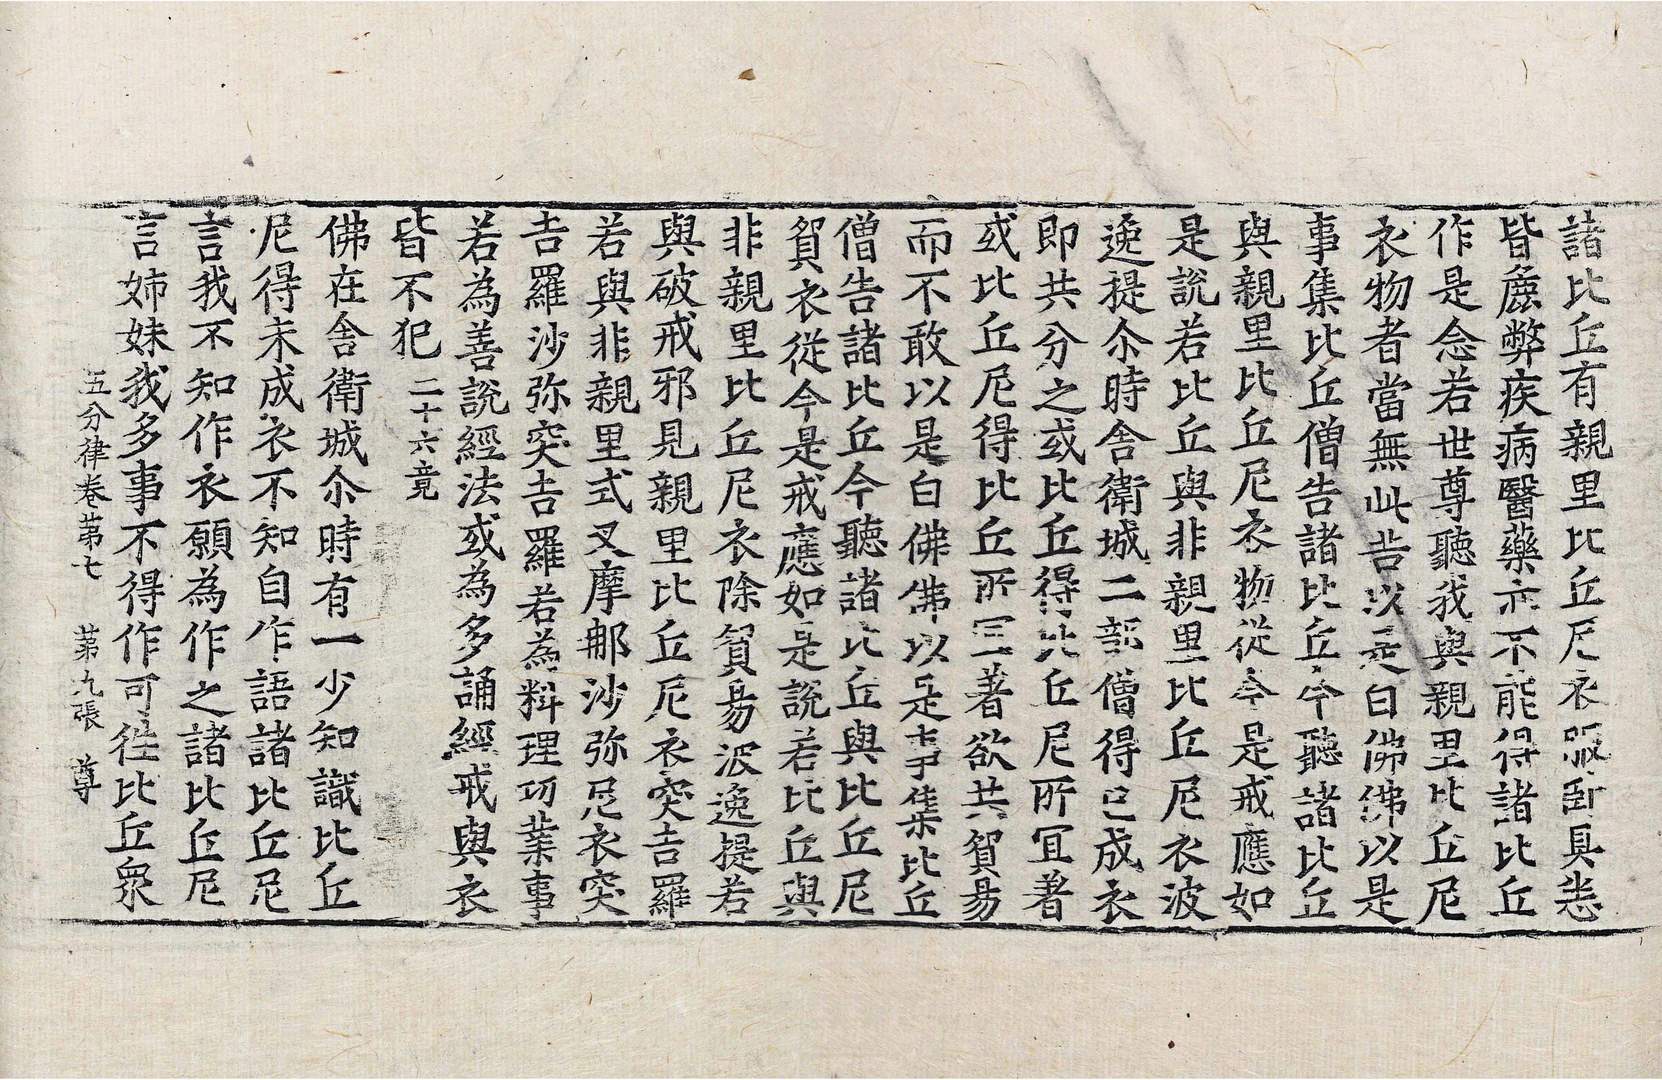 諸比丘有親里比丘尼衣服卧具悉
皆麁弊疾病醫藥亦不能得諸比丘
作是念若世尊聽我與親里比丘尼
衣物者當無此苦以是白佛佛以是
事集比丘僧告諸比丘今聽諸比丘
與親里比丘尼衣物從今是戒應如
是說若比丘與非親里比丘尼衣波
逸提尒時舍衛城二部僧得已成衣
即共分之或比丘得比丘尼所冝著
或比丘尼得比丘所冝著欲共貿易
而不敢以是白佛佛以是事集比丘
僧告諸比丘今聽諸比丘與比丘尼
貿衣從今是戒應如是說若比丘與
非親里比丘尼衣除貿易波逸提若
與破戒邪見親里比丘尼衣突吉羅
若與非親里式叉摩那沙弥尼衣突
吉羅沙弥突吉羅若為料理功業事
若為善說經法或為多誦經戒與衣
皆不犯 二十六竟
佛在舍衛城尒時有一少知識比丘
尼得未成衣不知自作語諸比丘尼
言我不知作衣願為作之諸比丘尼
言姉妹我多事不得作可往比丘衆
五分律卷第七 第九張 尊